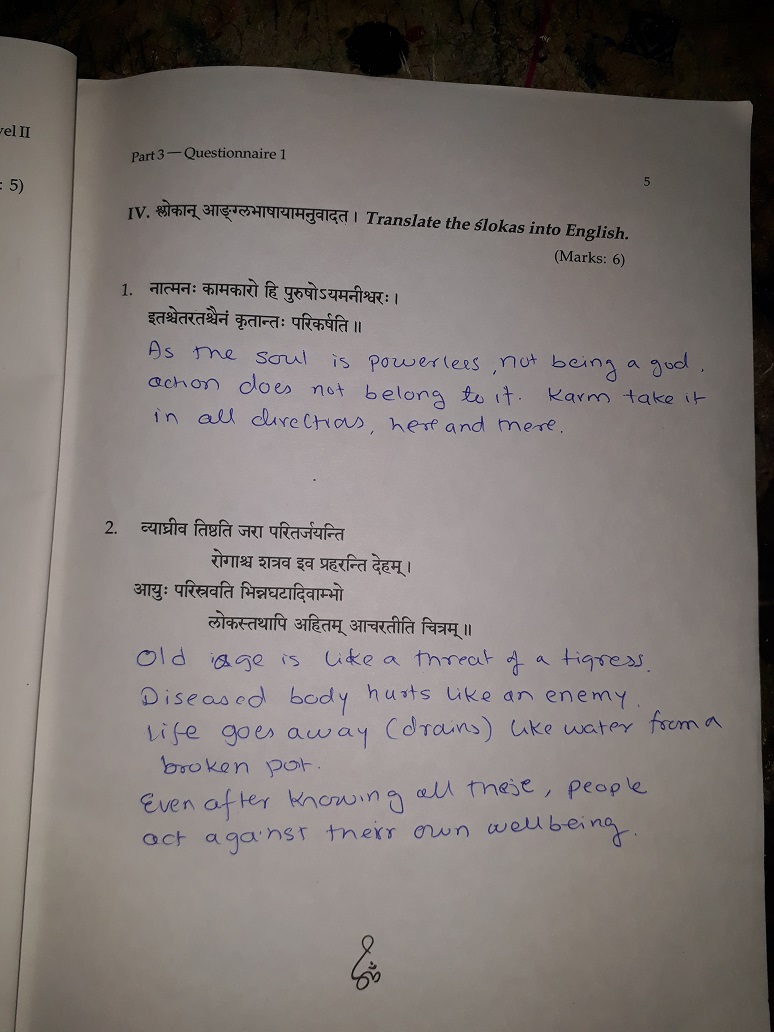 vel II
: 5)
Part 3 — Questionnaire 1
5
IV. श्लोकान् आङ्ग्लभाषायामनुवादत। Translate the ślokas into English.
(Marks: 6)
1. नात्मनः कामकारो हि पुरुषोऽयमनीश्वरः।
इतश्चेतरतश्चैनं कृतान्तः परिकर्षति॥
As the soul is powerlees, not being a god,
action does not belong to it. Karm take it
in all directions, here and there.
2. व्याघ्रीव तिष्ठति जरा परितर्जयन्ति
रोगाश्च शत्रव इव प्रहरन्ति देहम्।
आयुः परिस्रवति भिन्नघटादिवाम्भो
लोकस्तथापि अहितम् आचरतीति चित्रम्॥
Old age is like a threat of a tigress.
Diseased body hurts like an enemy.
Life goes away (drains) like water from a
broken pot.
Even after knowing all these, people
act against their own wellbeing.
ॐ